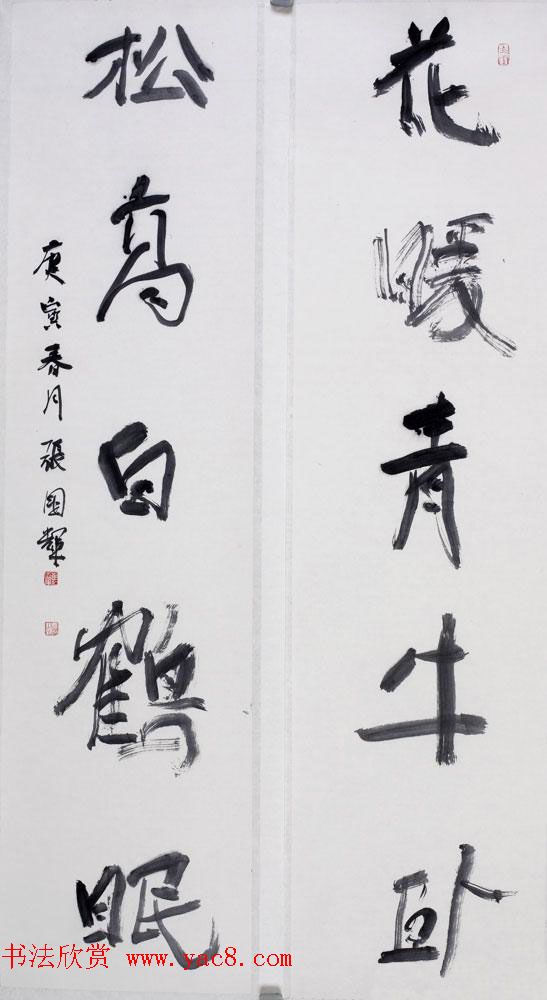 花暖青牛卧
松高白鹤眠
庚寅春月張国輝
书法欣赏 www.yac8.com